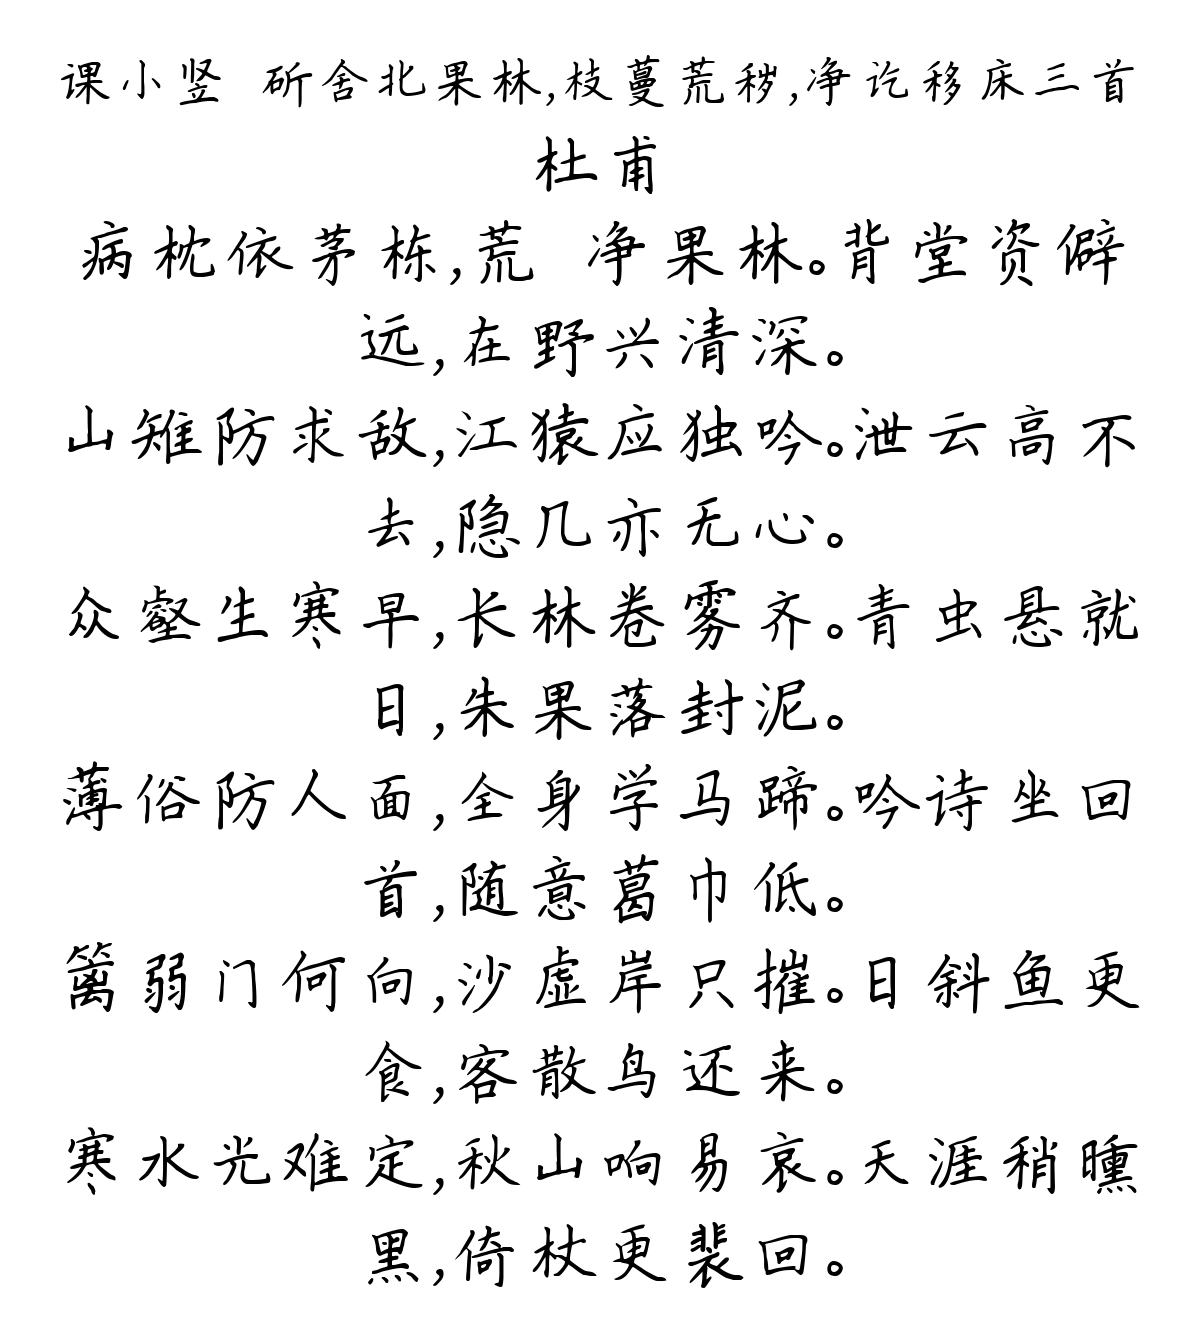 课小竖 斫舍北果林,枝蔓荒秽,净讫移床三首
杜甫
病枕依茅栋,荒 净果林。背堂资僻
远,在野兴清深。
山雉防求敌,江猿应独吟。泄云高不
去,隐几亦无心。
众壑生寒早,长林卷雾齐。青虫悬就
日,朱果落封泥。
薄俗防人面,全身学马蹄。吟诗坐回
首,随意葛巾低。
篱弱门何向,沙虚岸只摧。日斜鱼更
食,客散鸟还来。
寒水光难定,秋山响易哀。天涯稍曛
黑,倚杖更裴回。